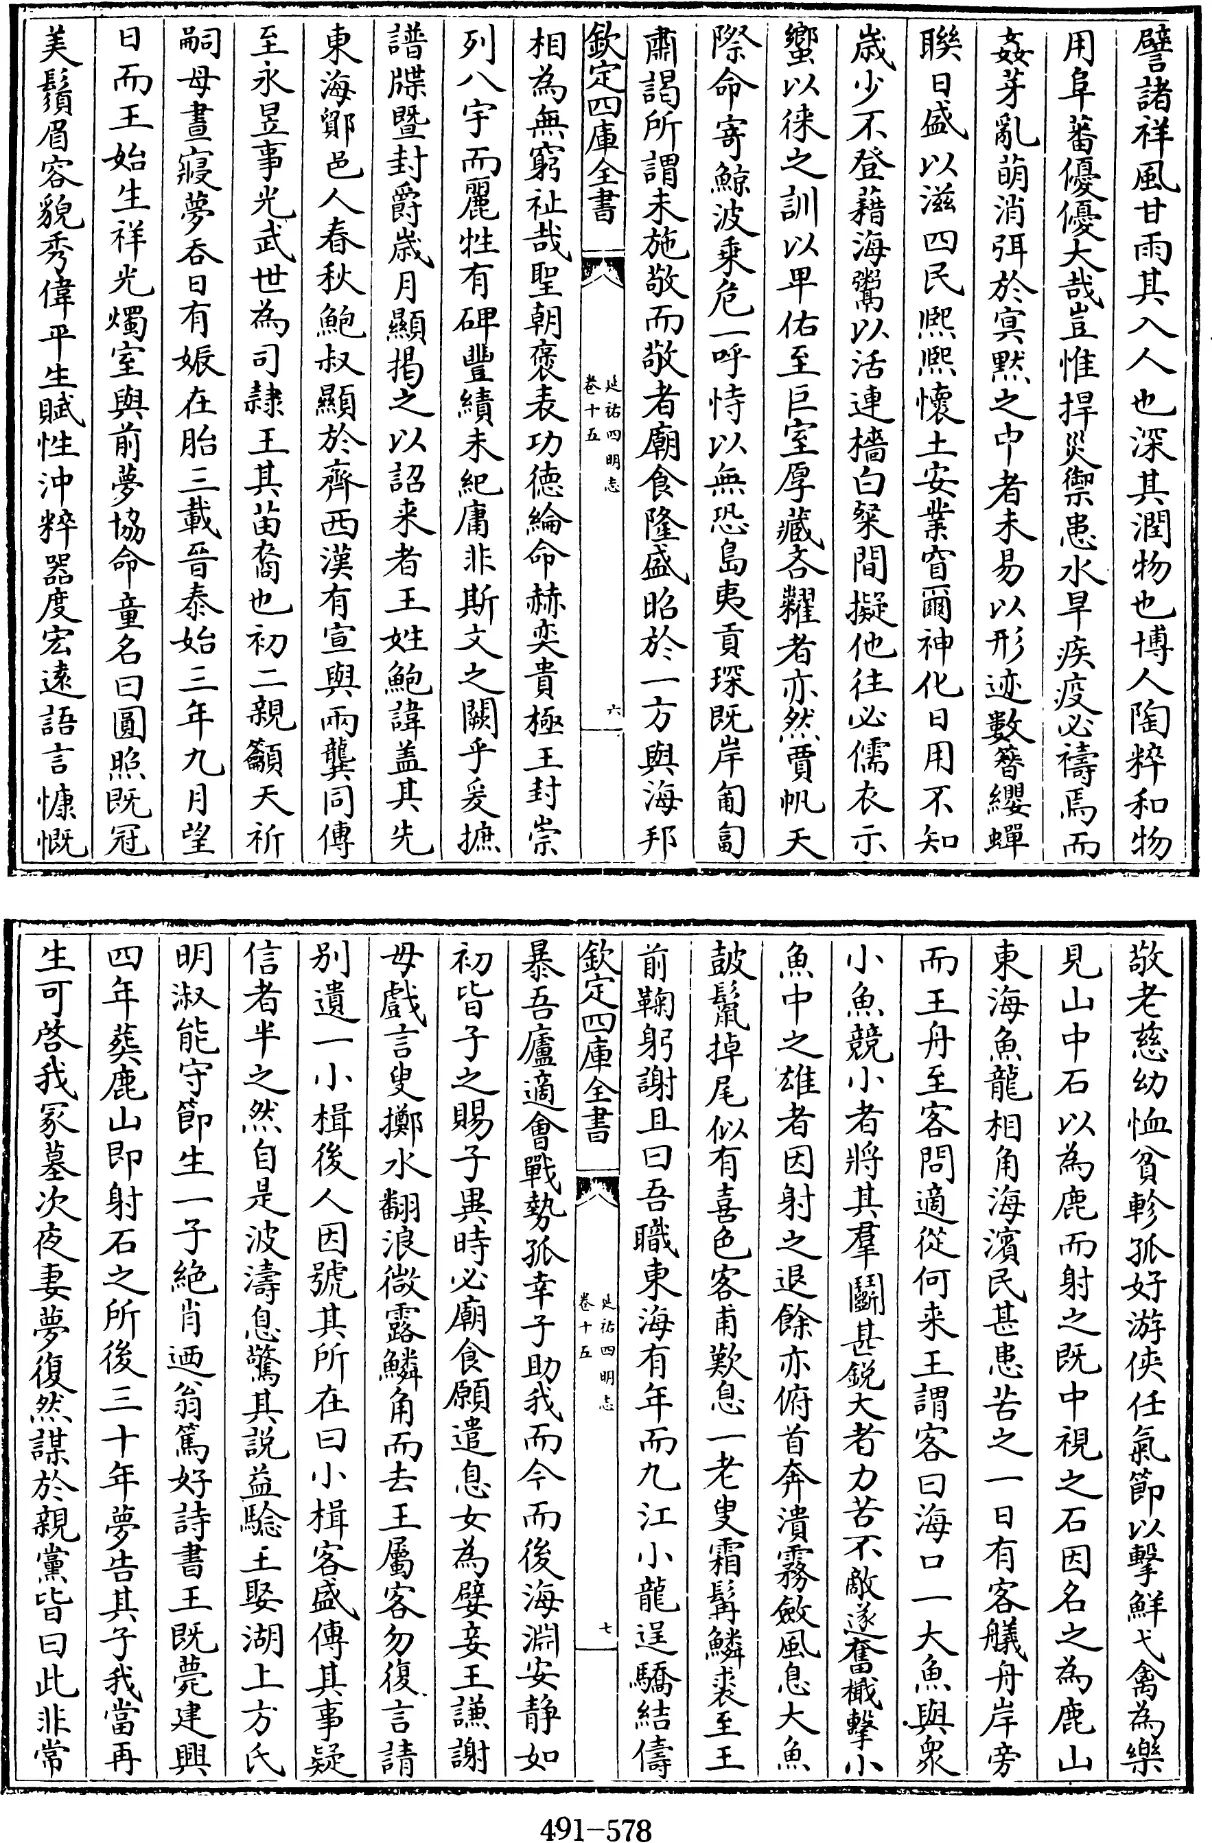 譬諸祥風甘雨其入人也深其潤物也博人陶粹和物
用阜蕃優優大哉豈惟捍災禦患水旱疾疫必禱焉而
姦芽亂萌消弭於冥黙之中者未易以形迹數簪纓蟬
聯日盛以滋四民熙熙懷土安業窅爾神化日用不知
歳少不登藉海鬻以活連檣白粲間擬他往必儒衣示
蠁以徠之訓以早佑至巨室厚藏吝糶者亦然賈帆天
際命寄鯨波乗危一呼恃以無恐島夷貢琛既岸匍匐
肅謁所謂未施敬而敬者廟食隆盛昭於一方與海邦
欽定四庫全書
延祐四明志
卷十五
六
相為無窮祉哉聖朝褒表功德綸命赫奕貴極王封崇
列八字而麗牲有碑豐績未紀庸非斯文之闕乎爰摭
譜牒暨封爵歳月顯揭之以詔来者王姓鮑諱盖其先
東海鄮邑人春秋鮑叔顯於齊西漢有宣與兩龔同傳
至永昱事光武世為司隷王其苗裔也初二親籲天祈
嗣母晝寢夢吞日有娠在胎三載晉泰始三年九月望
日而王始生祥光燭室與前夢協命童名曰圓照既冠
美鬚眉容貌秀偉平生賦性沖粹器度宏逺語言慷慨
敬老慈幼恤貧軫孤好游俠任氣節以擊鮮弋禽為樂
見山中石以為鹿而射之既中視之石因名之為鹿山
東海魚龍相角海濱民甚患苦之一日有客艤舟岸旁
而王舟至客問適從何来王謂客曰海口一大魚與衆
小魚競小者將其羣鬭甚鋭大者力苦不敵遂奮檝擊小
魚中之雄者因射之退餘亦俯首奔潰霧斂風息大魚
皷鬛掉尾似有喜色客甫歎息一老叟霜髯鱗裘至王
前鞠躬謝且曰吾職東海有年而九江小龍逞驕結儔
欽定四庫全書
延祐四明志
卷十五
七
暴吾廬適會戰勢孤幸子助我而今而後海淵安静如
初皆子之賜子異時必廟食願遣息女為嬖妾王謙謝
毋戲言叟擲水翻浪微露鱗角而去王屬客勿復言請
別遺一小楫後人因號其所在曰小楫客盛傳其事疑
信者半之然自是波濤息驚其説益驗王娶湖上方氏
明淑能守節生一子絶肖迺翁篤好詩書王既薨建興
四年葬鹿山即射石之所後三十年夢告其子我當再
生可啓我冢墓次夜妻夢復然謀於親黨皆曰此非常
491-578